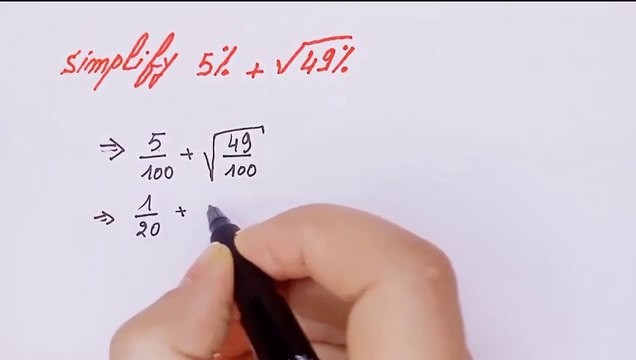 simplify 5% + √49%
⇒ 5/100 + √49/100
⇒ 1/20 +